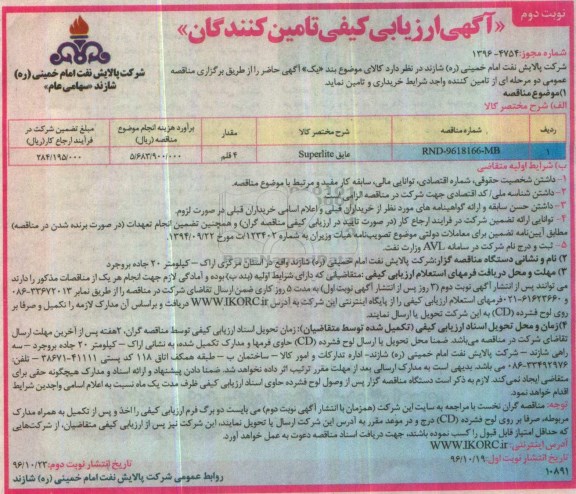 نوبت دوم
«آگهی ارزیابی کیفی تامین کنندگان»
شرکت پالایش نفت امام خمینی (ره)
شازند «سهامی عام»
شماره مجوز: ۴۷۵۴- ۱۳۹۶
شرکت پالایش نفت امام خمینی (ره) شازند در نظر دارد کالای موضوع بند «یک» آگهی حاضر را از طریق برگزاری مناقصه
عمومی دو مرحله ای از تامین کننده واجد شرایط خریداری و تامین نماید.
۱) موضوع مناقصه
الف) شرح مختصر کالا
ردیف شماره مناقصه شرح مختصر کالا مقدار برآورد هزینه انجام موضوع مناقصه (ریال) مبلغ تضمین شرکت در فرآیند ارجاع کار (ریال)
۱ RND-9618166-MB عایق Superlite ۴ قلم ۵/۶۸۳/۹۰۰/۰۰۰ ۲۸۴/۱۹۵/۰۰۰
ب) شرایط اولیه متقاضی
۱- داشتن شخصیت حقوقی، شماره اقتصادی، توانایی مالی، سابقه کار مفید و مرتبط با موضوع مناقصه.
۲- داشتن شناسه ملی / کد اقتصادی جهت شرکت در مناقصه الزامی
۳- داشتن حسن سابقه و ارائه گواهینامه های مورد نظر از خریداران قبلی و اعلام اسامی خریداران قبلی در صورت لزوم.
۴- توانایی ارائه تضمین شرکت در فرایند ارجاع کار (در صورت تایید در ارزیابی کیفی مناقصه گران) و همچنین تضمین انجام تعهدات (در صورت برنده شدن در مناقصه)
مطابق آیین‌نامه تضمین برای معاملات دولتی موضوع تصویب‌نامه هیات وزیران به شماره ۱۲۳۴۰۲/ت مورخ ۱۳۹۴/۰۹/۲۲
۵- ثبت و درج نام شرکت در سامانه AVL وزارت نفت.
۲) نام و نشانی دستگاه مناقصه گزار: شرکت پالایش نفت امام خمینی (ره) شازند واقع در استان مرکزی اراک – کیلومتر ۲۰ جاده بروجرد
۳) مهلت و محل دریافت فرمهای استعلام ارزیابی کیفی: متقاضیانی که دارای شرایط اولیه (بند ب) بوده و آمادگی لازم جهت انجام هر یک از مناقصات مذکور را دارند
می توانند پس از انتشار آگهی نوبت دوم (۳ روز پس از انتشار آگهی نوبت اول) به مدت ۵ روز کاری ضمن ارسال تقاضای شرکت در مناقصه را از طریق نمابر ۳۳۶۷۲۰۱۳-۰۸۶
و ۶۱۶۲۳۶۶۰-۰۲۱ فرمهای استعلام ارزیابی کیفی را از پایگاه اینترنتی این شرکت به آدرس WWW.IKORC.ir دریافت و براساس آن مدارک لازمه را تکمیل و صرفا بر
روی لوح فشرده (CD) به این شرکت تحویل یا ارسال نمایند.
۴) زمان و محل تحویل اسناد ارزیابی کیفی (تکمیل شده توسط متقاضیان): زمان تحویل اسناد ارزیابی کیفی توسط مناقصه گران، ۲ هفته پس از آخرین مهلت ارسال
تقاضای شرکت در مناقصه می‌باشد. ضمنا محل تحویل یا ارسال لوح فشرده (CD) حاوی فرمها و مدارک تکمیل شده، به نشانی اراک – کیلومتر ۲۰ جاده بروجرد – سه
راهی شازند – شرکت پالایش نفت امام خمینی (ره) شازند – اداره تدارکات و امور کالا – ساختمان ب – طبقه همکف اتاق ۱۱۸ کد پستی ۴۱۱۱۱-۳۸۶۷۱ – تلفن:
۳۳۴۹۲۹۷۶-۰۸۶ می باشد. بدیهی است به مدارک ارسالی بعد از مهلت مقرر ترتیب اثر داده نخواهد شد. ضمنا دادن پیشنهاد و ارائه اسناد و مدارک هیچگونه حقی برای
متقاضی ایجاد نمی‌کند. لازم به ذکر است دستگاه مناقصه گزار پس از وصول لوح فشرده حاوی اسناد ارزیابی کیفی ظرف مدت یک ماه نسبت به اعلام اسامی واجدین شرایط
اقدام خواهد نمود.
توجه: مناقصه گران نخست با مراجعه به سایت این شرکت (همزمان با انتشار آگهی نوبت دوم) می بایست دو برگ فرم ارزیابی کیفی را اخذ و پس از تکمیل به همراه مدارک
مربوطه، صرفا بر روی لوح فشرده (CD) درج و در موعد مقرر به آدرس این شرکت ارسال یا تحویل نمایند، این شرکت نیز پس از ارزیابی کیفی متقاضیان، از شرکت‌هایی
که حداقل امتیاز قابل قبول را کسب نموده باشند، جهت دریافت اسناد مناقصه دعوت به عمل خواهد آورد.
آدرس اینترنتی: WWW.IKORC.ir
تاریخ انتشار نوبت اول: ۹۶/۱۰/۱۹
تاریخ انتشار نوبت دوم: ۹۶/۱۰/۲۳
۱۰۸۹۱
روابط عمومی شرکت پالایش نفت امام خمینی (ره) شازند